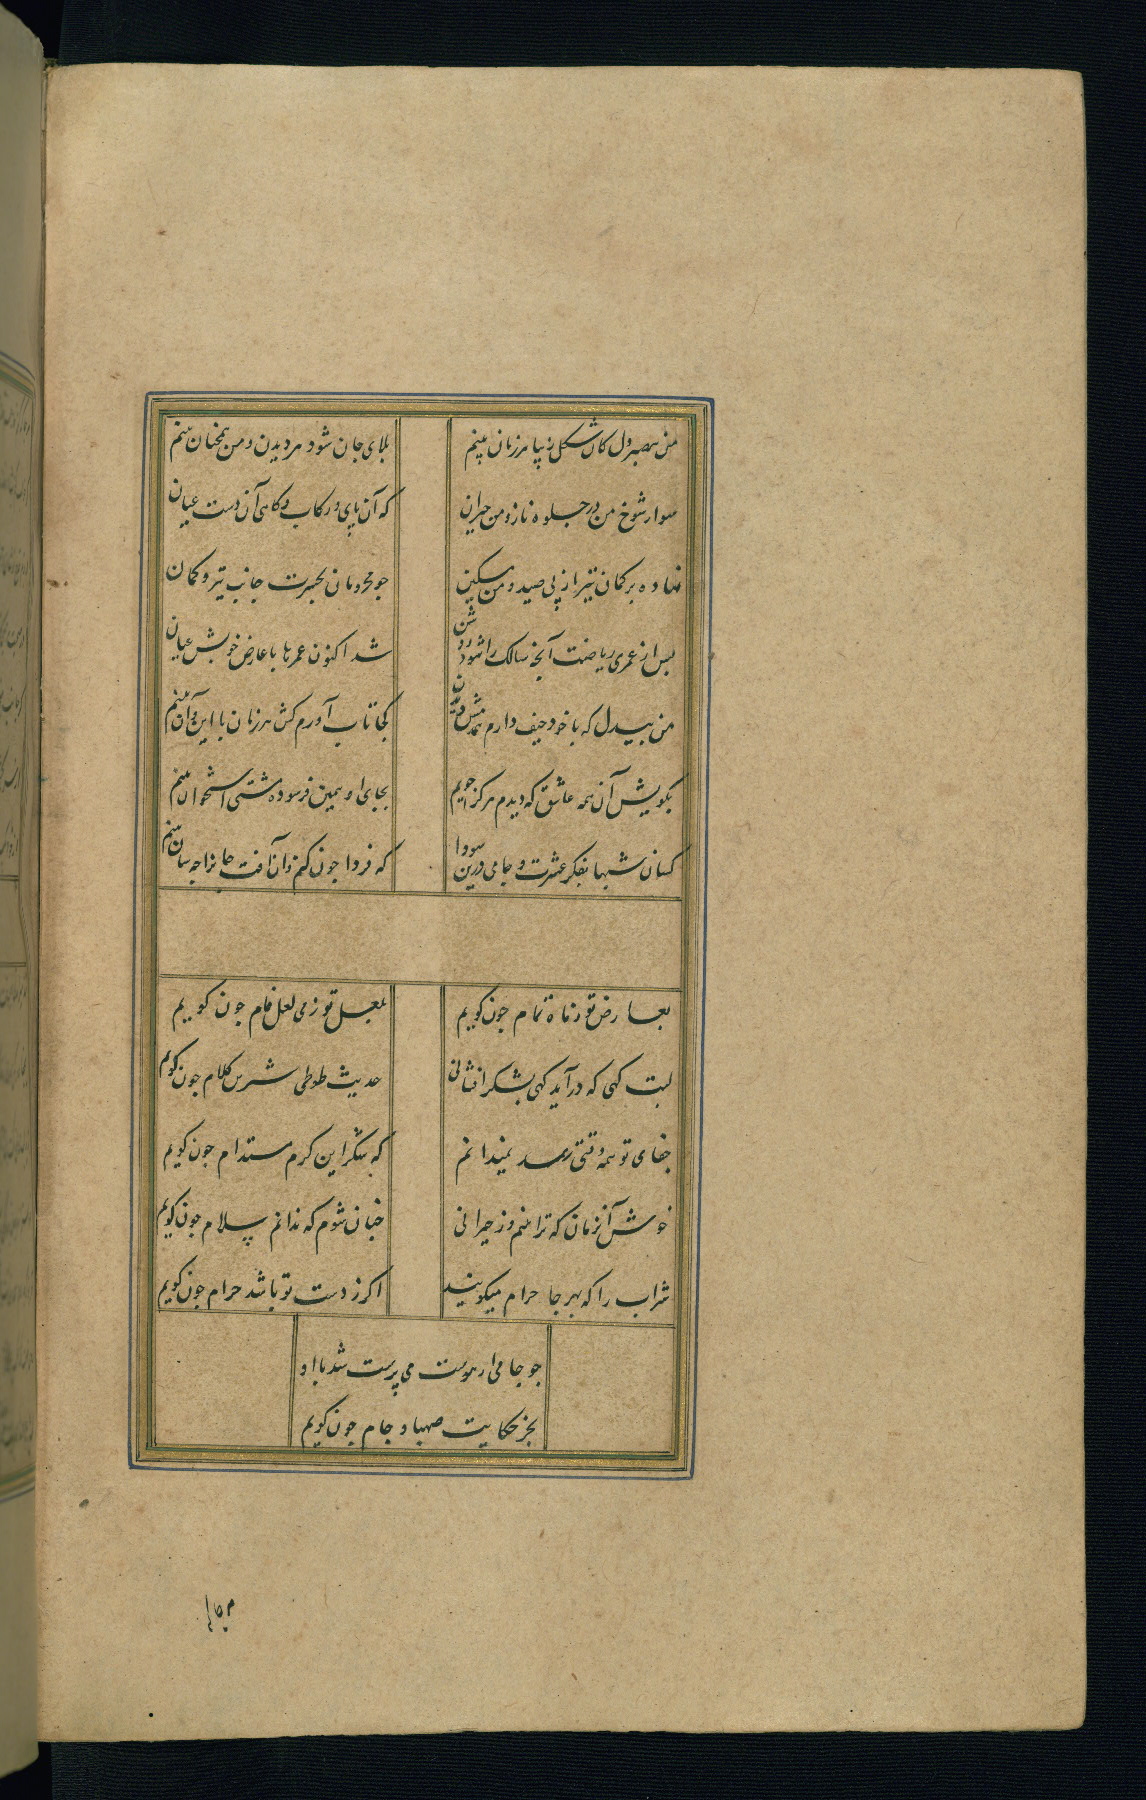 من بیصبر و دل کان شکل زیبا هر زمان بینم بلای جان شود هر دیدن و من همچنان بینم
سوار شوخ من در جلوه ناز و من حیران که آن پای و رکاب و کاهی آن دست عنان
نهاده بر کمان تیر از پی صید و من مسکین جو محرومان بحسرت جانب تیر و کمان
بس از عمری ریاضت آنچه سالک را شود روشن شد اکنون عمرها با عارض خوبش عیان
من بیدل که با خود حیف دارم همدمش دیدن کجا تاب آورم کش هر زمان با این و آن بینم
بکویش آن همه عاشق که دیدم هر کرا جویم بجای او همین فرسوده مشتی استخوان بینم
کسان شبها بفکر عشرت و جامی درین سودا که فردا جون کنم زان آفت جانرا جه سان بینم
بعارض تو ز ماه تمام جون کویم بلعل تو ز می لعل فام جون کویم
لبت کهی که در آید کهی بشکر افشانی حدیث طوطی شیرین کلام جون کویم
جفای تو همه وقتی رسد نمیدانم که شکر این کرم مستدام جون کویم
خوش آنزمان که ترا بینم و ز حیرانی جنان شوم که ندانم سلام جون کویم
شراب را که بهر جا حرام میکویند اکر ز دست تو باشد حرام جون کویم
جو جامی ار هوست می پرست شد با او
بجز حکایت صهبا و جام جون کویم